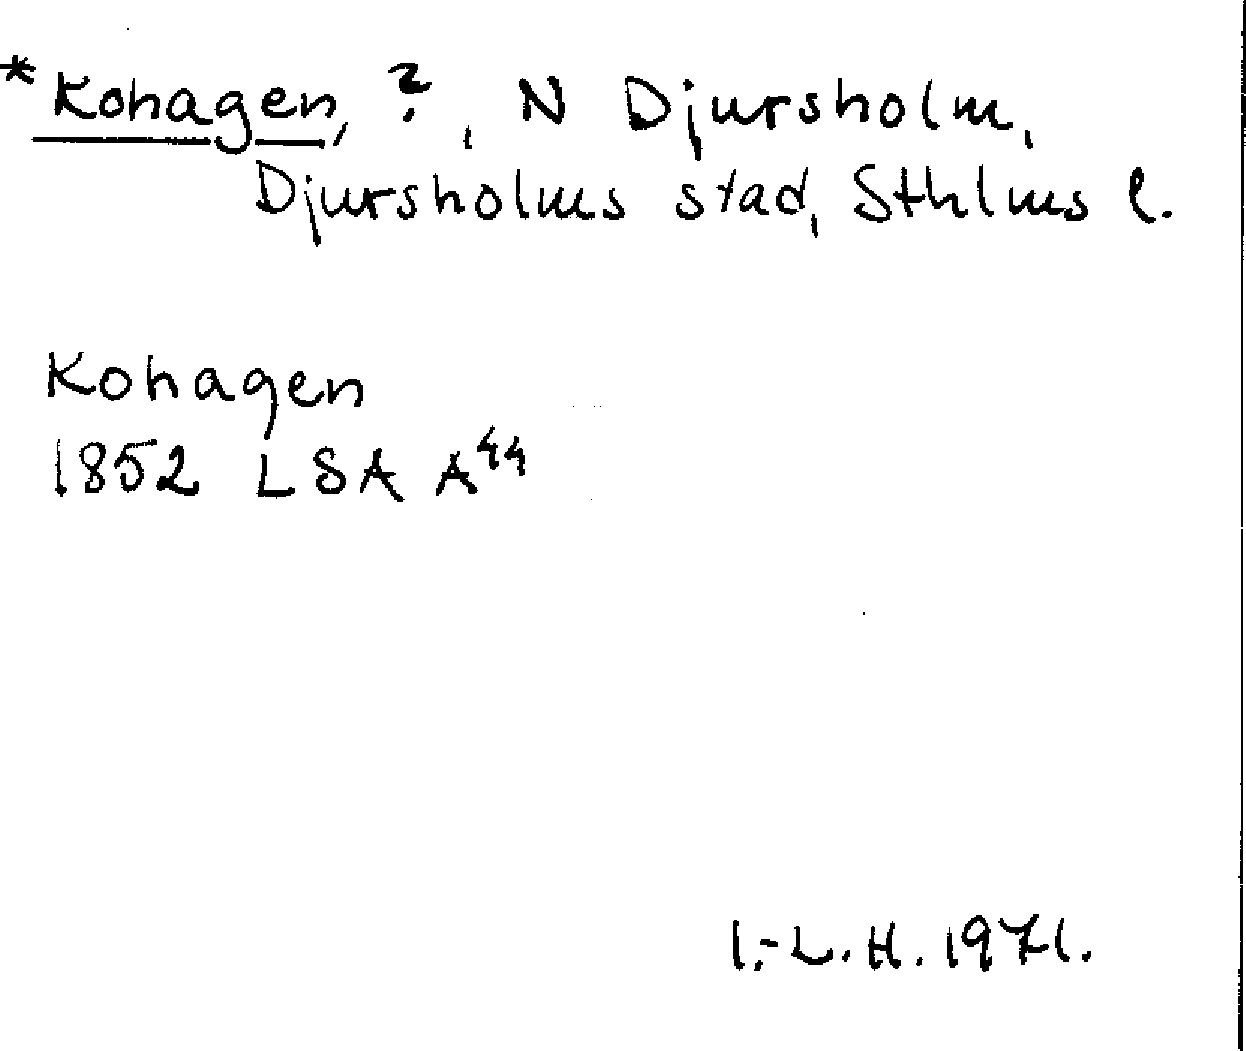 *Kohagen, ?, N Djursholm,
Djursholms stad, Sthlms l.
Kohagen
1852 LSA A44
I.-L. H. 1971.